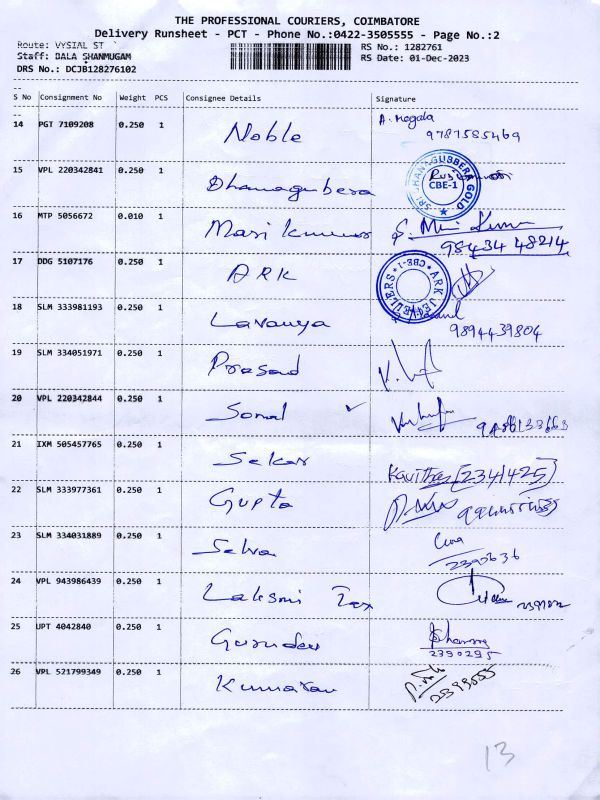 THE PROFESSIONAL COURIERS, COIMBATORE
Delivery Runsheet - PCT - Phone No.:0422-3505555 - Page No.:2
Route: VYSIAL ST
RS No.: 1282761
Staff: BALA SHANMUGAM
RS Date: 01-Dec-2023
DRS No.: DCJB128276102
S No Consignment No Weight PCS Consignee Details Signature
14 PGT 7109208 0.250 1 Noble A. Megala
9787585469
15 VPL 220342841 0.250 1 Dhanagubera
CBE-1
16 MTP 5056672 0.010 1 Mari kumar
98434 48214
17 DDG 5107176 0.250 1 ARK
ARK JEWELLERS CBE-1
18 SLM 333981193 0.250 1 Lavanya
9894439804
19 SLM 334051971 0.250 1 Prasad
20 VPL 220342844 0.250 1 Sonal ✓
21 IXM 505457765 0.250 1 Sekar Kavitha [2341425]
22 SLM 333977361 0.250 1 Gupta
23 SLM 334031889 0.250 1 Selva
2395636
24 VPL 943986439 0.250 1 Laksmi Tex
25 UPT 4042840 0.250 1 Gurudev
2390295
26 VPL 521799349 0.250 1 Kumaran
13